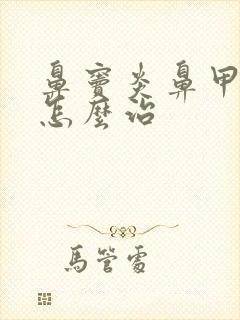 鼻竇炎鼻甲
怎麼治
馬管處